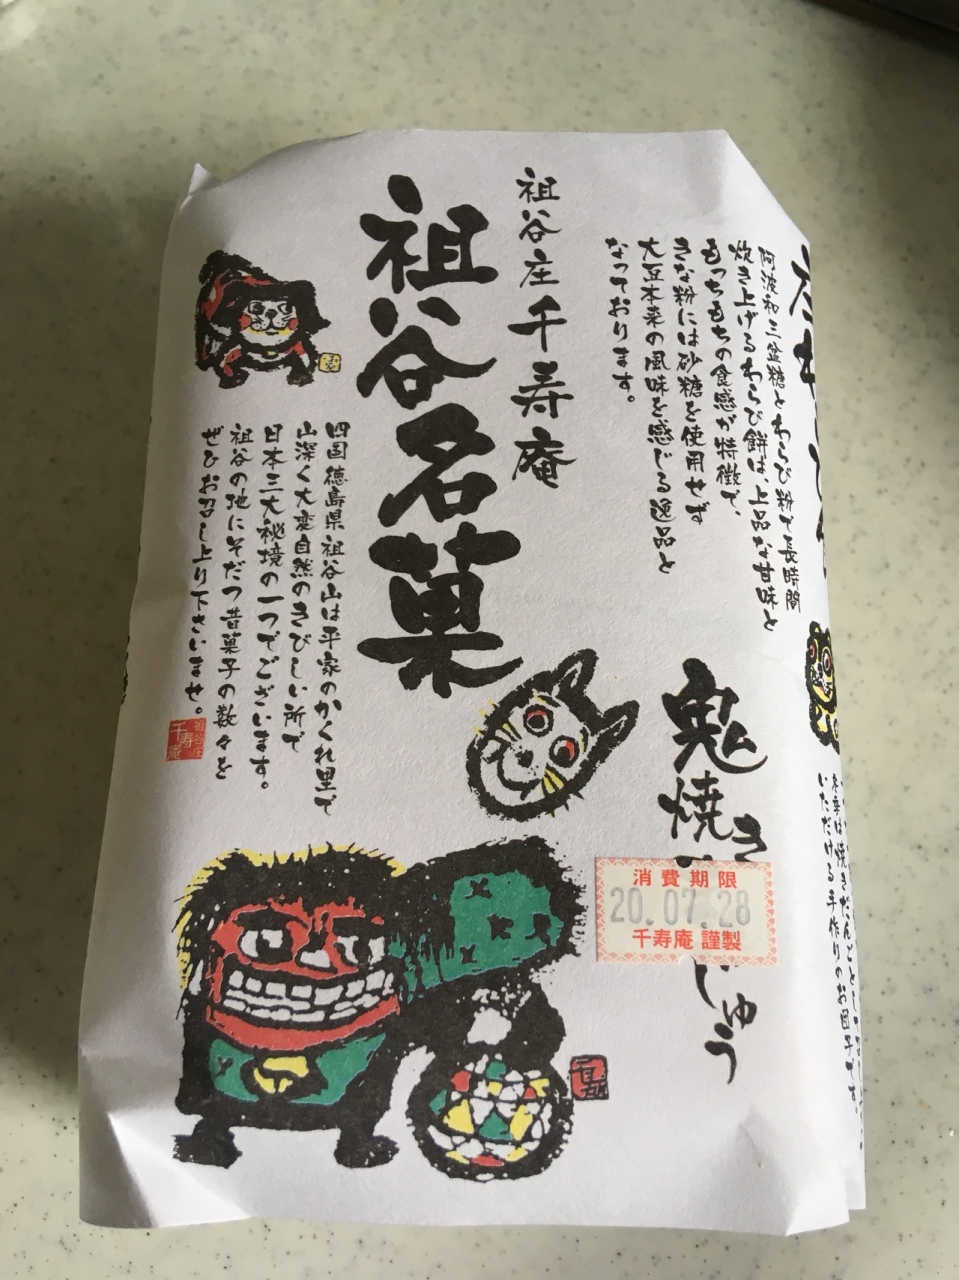 阿波和三盆糖とわらび粉で長時間
炊き上げるわらび餅は、上品な甘味と
もっちもちの食感が特徴で、
きな粉には砂糖を使用せず
大豆本来の風味を感じる逸品と
なっております。
祖谷庄 千寿庵
祖谷名菓
四国徳島県祖谷山は平家のかくれ里で
山深く大変自然のきびしい所で
日本三大秘境の一つでございます。
祖谷の地にそだつ昔菓子の数々を
ぜひお召し上り下さいませ。
祖谷庄
千寿庵
鬼焼
じゅう
消費期限
20.07.28
千寿庵 謹製
いただける手作りのお団子です。